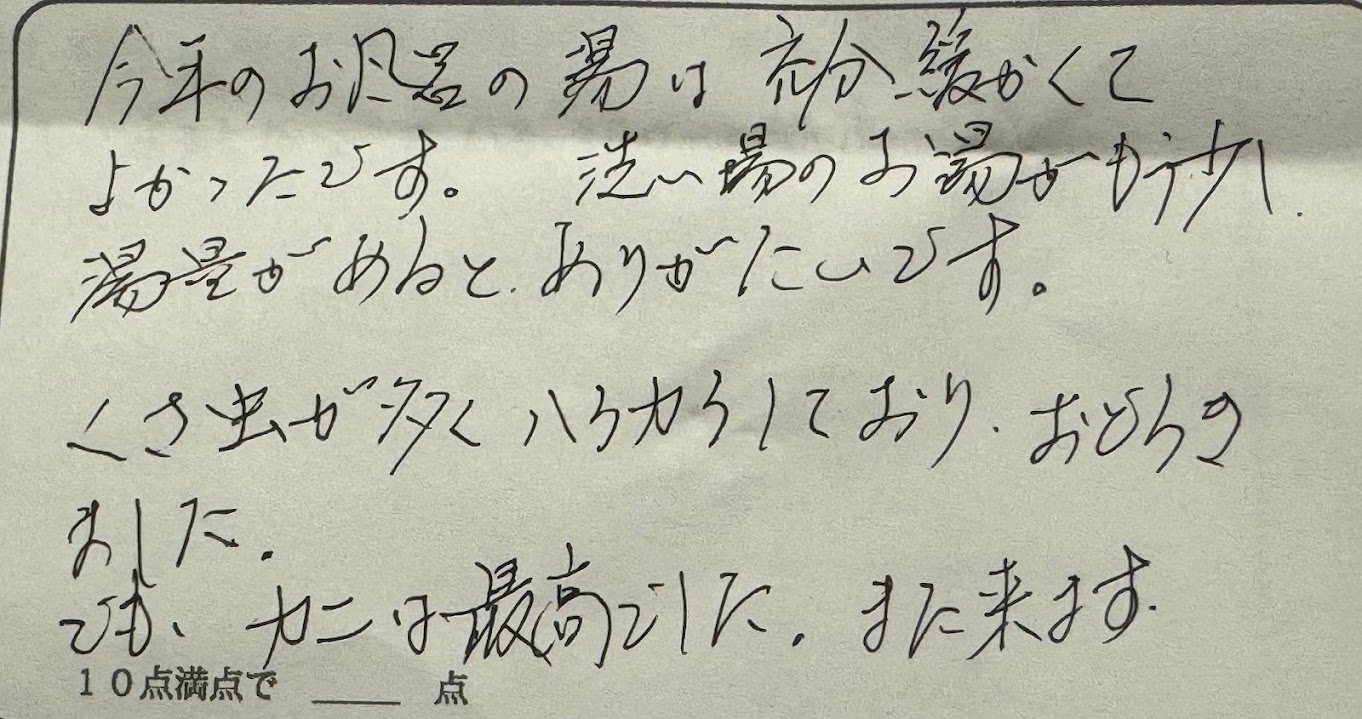 今年のお風呂の湯は充分緩かくて
よかったです。 洗い場のお湯がもう少し
湯量があると、ありがたいです。
くさ虫が多くハケカケしており、おどろき
ました。
でも、カニは最高でした。また来ます。
10点満点で ＿＿ 点